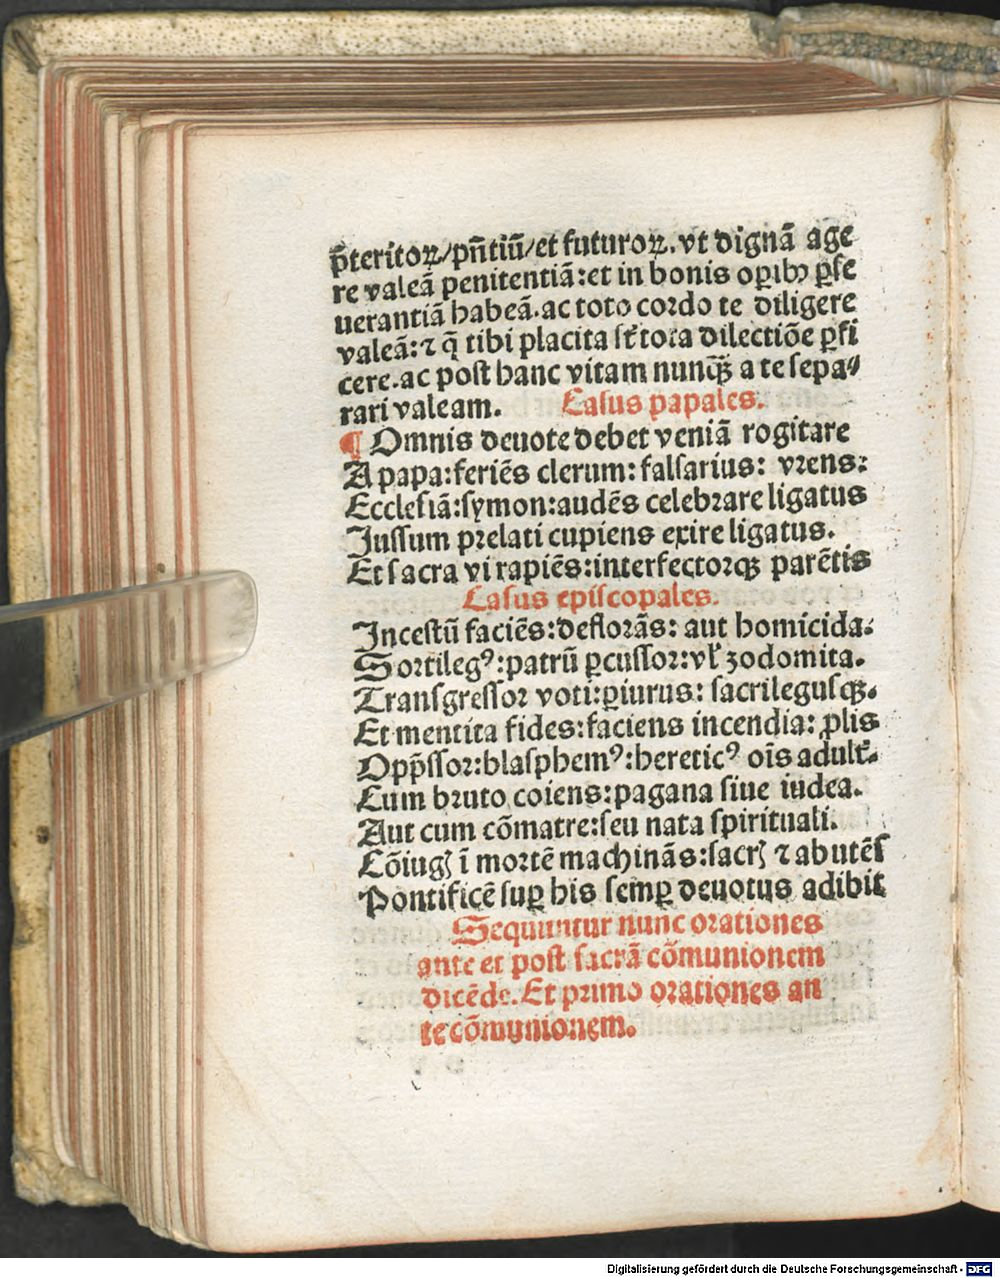 p̄teritoꝝ/pn̄tiū/et futuroꝝ. vt dignā age
re valeā penitentiā: et in bonis oꝑibꝰ ꝑſe
uerantiā habeā. ac toto cordo te diligere
valeā: ⁊ q̄ tibi placita ſt̄ tota dilectiōe ꝑfi
cere. ac poſt hanc vitam nunqꝫ a te ſepa⸗
rari valeam. Caſus papales.
¶ Omnis deuote debet veniā rogitare
A papa: feriēs clerum: falſarius: vrens:
Eccleſiā: ſymon: audēs celebrare ligatus
Juſſum prelati cupiens exire ligatus.
Et ſacra vi rapiēs: interfectorqꝫ parētis
Caſus epiſcopales.
Inceſtū faciēs: deflorās: aut homicida:
Sortilegꝰ: patrū ꝑcuſſor: vl̓ zodomita.
Tranſgreſſor voti: ꝑiurus: ſacrileguſqꝫ.
Et mentita fides: faciens incendia: ꝓlis
Opp̄ſſor: blaſphemꝰ: hereticꝰ oīs adult̓.
Cum bruto coiens: pagana ſiue iudea.
Aut cum cōmatre: ſeu nata ſpirituali.
Cōiugꝭ ī mortē machinās: ſacrꝭ ⁊ abutēſ
Pontificē ſuꝑ his ſemꝑ deuotus adibit
Sequuntur nunc orationes
ante et poſt ſacrā cōmunionem
dicēde. Et primo orationes an
te cōmunionem.
Digitalisierung gefördert durch die Deutsche Forschungsgemeinschaft - DFG